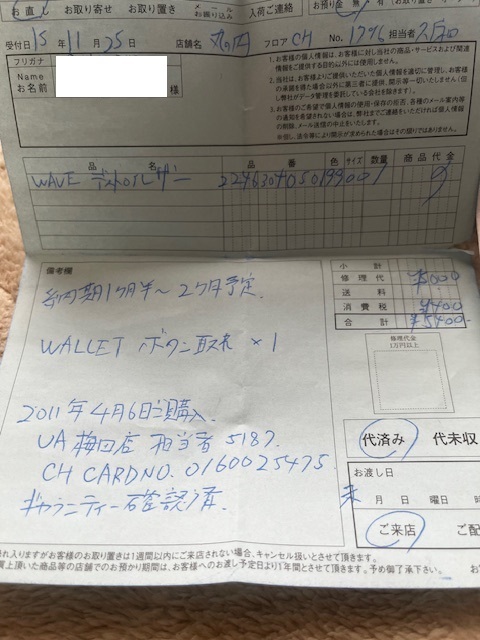 お直し お取り寄せ お取り置き メールお振り込み 入荷ご連絡 お預り金 無 有 (お
受付日 15年 11月 25日 店舗名 丸の内 フロア CH No. 1796 担当者
フリガナ
Name
お名前 様
1.お客様の個人情報は、お客様に対し当社の商品・サービスおよび関連情報をご提供する目的以外には使用しません。
2.当社は、お客様よりご提供いただいた個人情報を適切に管理し、お客様の承諾を得た場合以外に第三者に提供、開示等一切いたしません(但し弊社がデータ管理を委託している会社を除きます)。
3.お客様のご希望で個人情報の使用・保存の拒否、各種のメール案内等の通知を希望されない場合は、弊社までご連絡をいただければ個人情報の削除、メール送信の中止をいたします。
※但し、法令等により開示が求められた場合はその限りではありません。
品名 品番 色 サイズ 数量 商品代金
WAVE
備考欄
納期1ヶ月半~2ヶ月予定.
WALLET ボタン取れ ×1
2011年4月6日ご購入
UA 梅田店 担当者 5187.
CH CARD NO. 0160025475
ギャランティー確認済.
小計
修理代 ¥5000
送料
消費税 ¥400
合計 ¥5400-
修理代金
1万円以上
代済み 代未収
お渡し日
未 月 日 曜日 時
ご来店 ご配
れ入りますがお客様のお取り置きは1週間以内にご来店されない場合、キャンセル扱いとさせて頂きます。
買上頂いた商品等の店舗でのお預かり期間は、お客様へのお渡し予定日より1年間とさせて頂きます。予め御了承下さい。